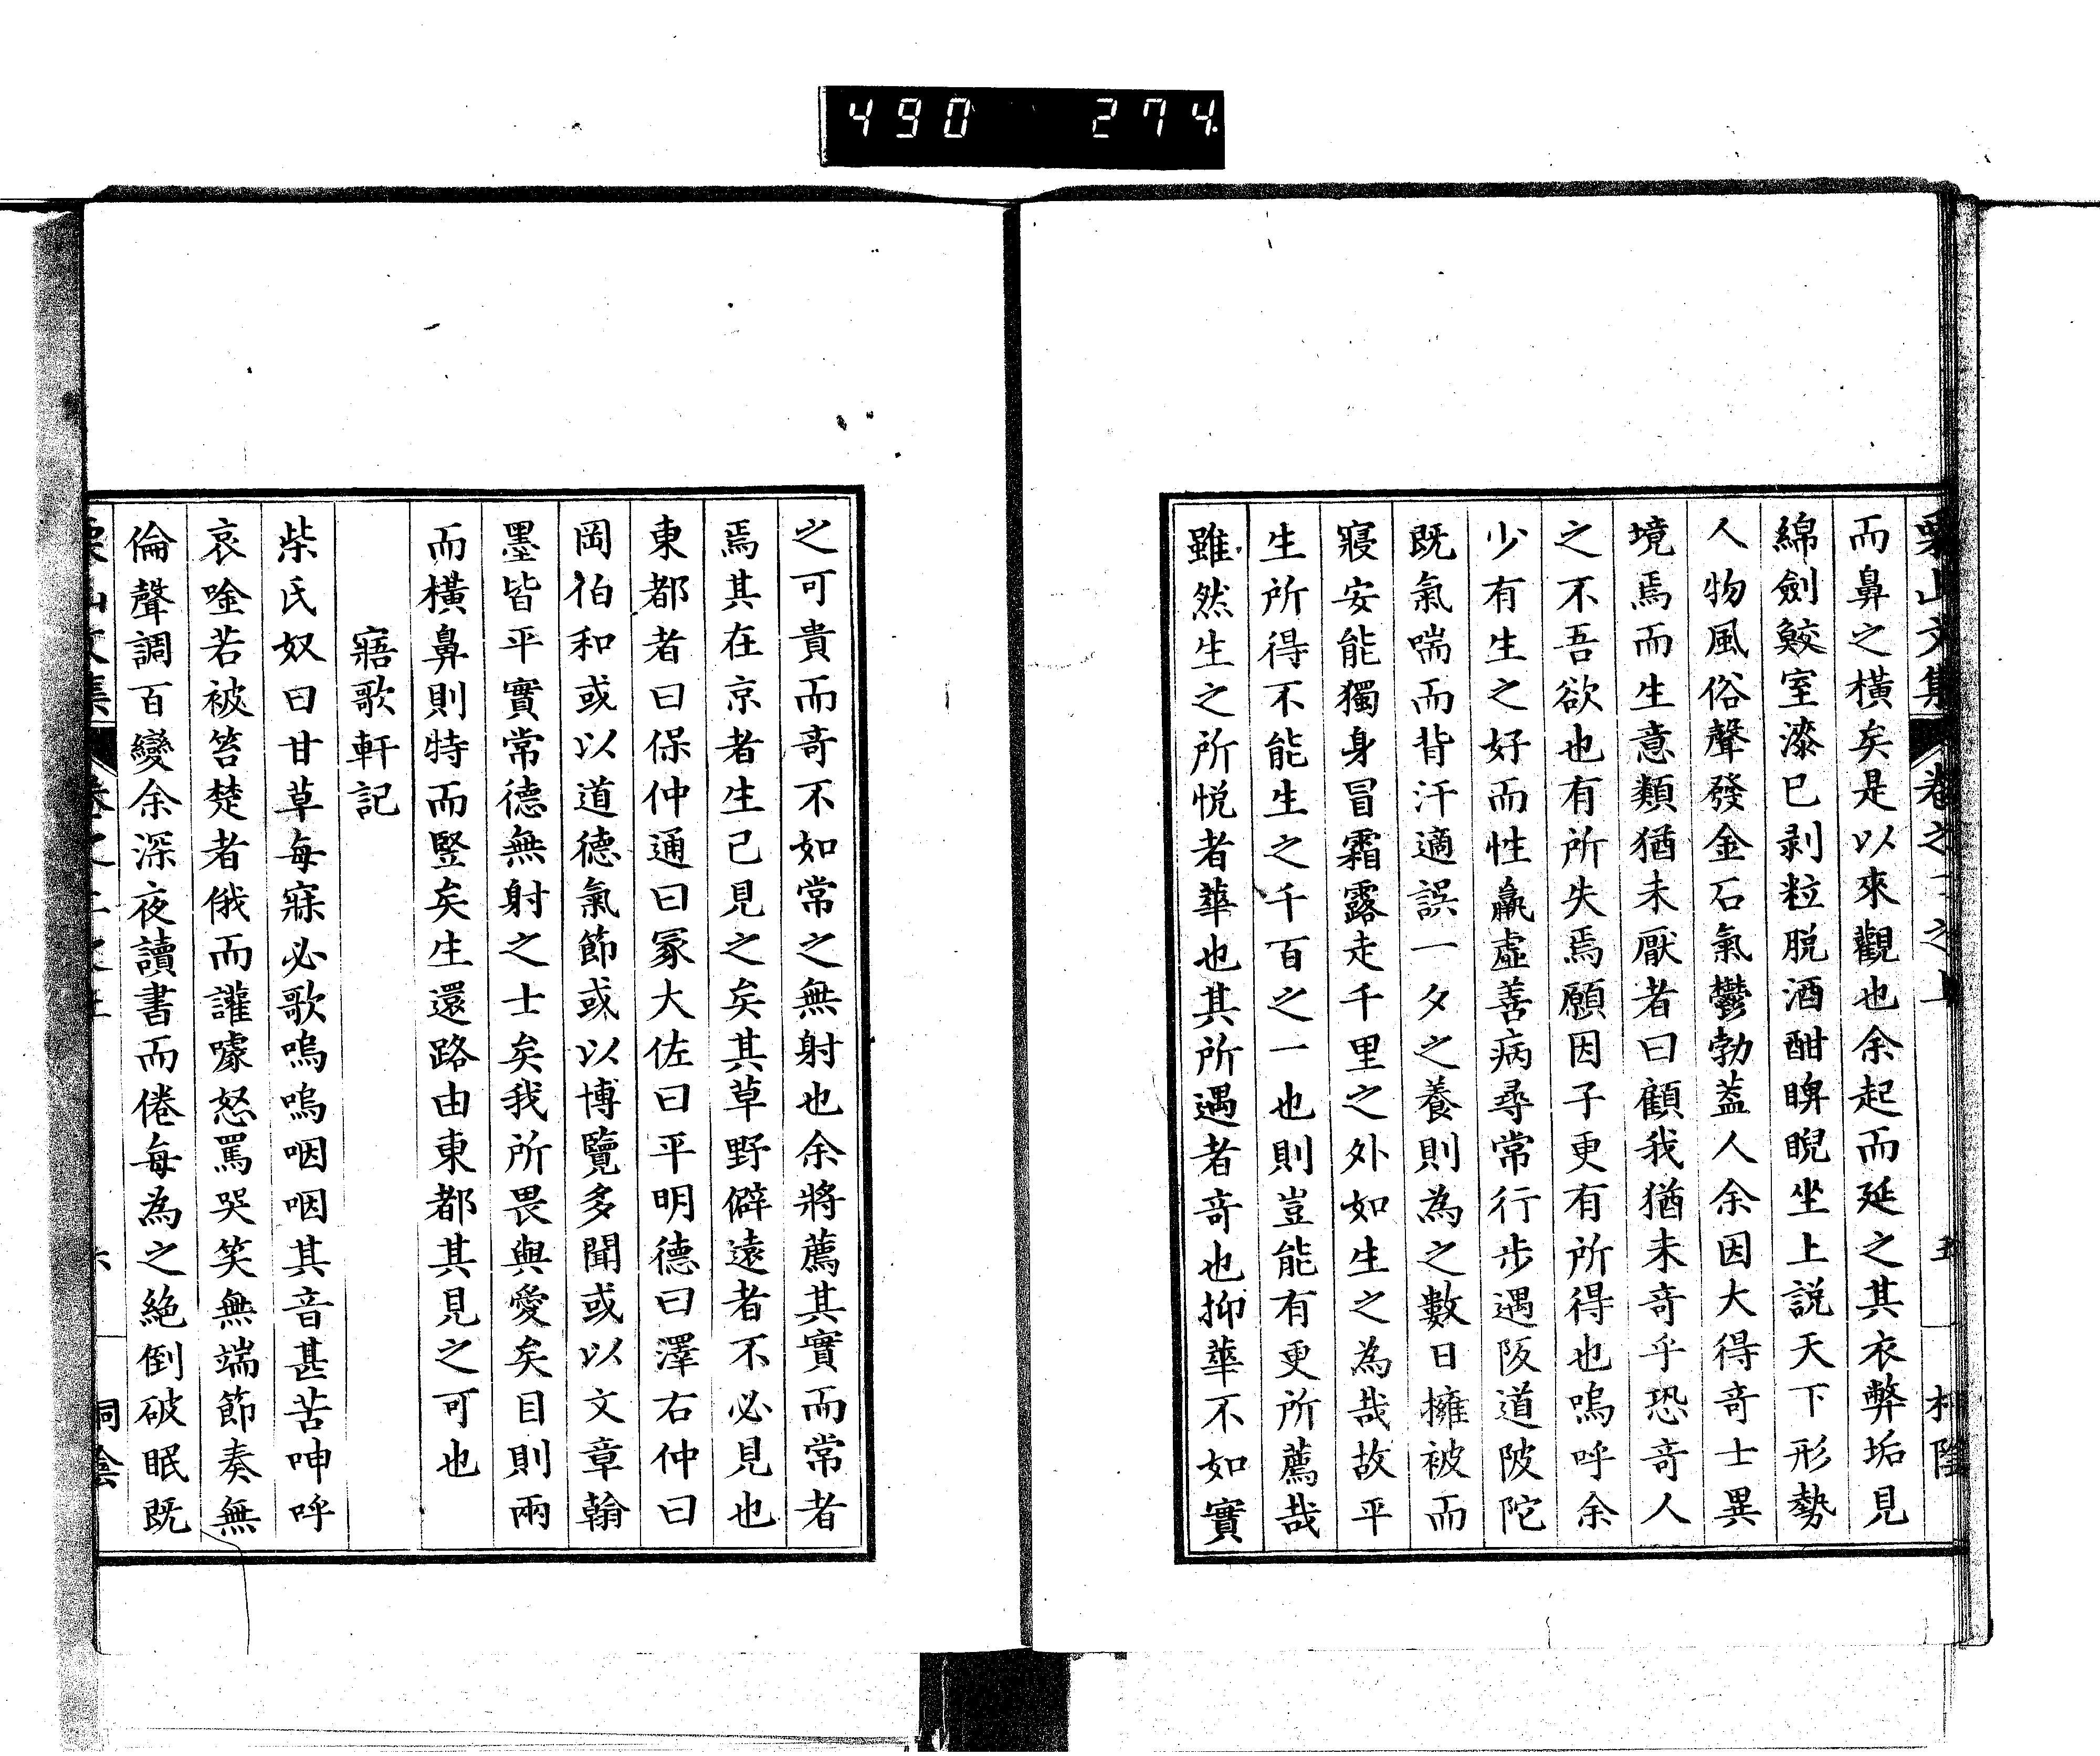 490 274
而鼻之橫矣是以來觀也余起而延之其衣弊垢見
綿劍鮫室漆已剥粒脱酒酣睥睨坐上説天下形勢
人物風俗聲發金石氣鬱勃蓋人余因大得奇士異
境焉而生意類猶未厭者曰顧我猶未奇乎恐奇人
之不吾欲也有所失焉願因子更有所得也嗚呼余
少有生之好而性羸虛善病尋常行步遇阪道陂陀
既氣喘而背汗適誤一夕之養則為之數日擁被而
寢安能獨身冒霜露走千里之外如生之為哉故平
生所得不能生之千百之一也則豈能有更所薦哉
雖然生之所悦者華也其所遇者奇也抑華不如實
之可貴而奇不如常之無射也余將薦其實而常者
焉其在京者生已見之矣其草野僻遠者不必見也
東都者曰保仲通曰冢大佐曰平明德曰澤右仲曰
岡伯和或以道德氣節或以博覽多聞或以文章翰
墨皆平實常德無射之士矣我所畏與愛矣目則兩
而橫鼻則特而竪矣生還路由東都其見之可也
寤歌軒記
柴氏奴曰甘草每寐必歌嗚嗚咽咽其音甚苦呻呼
哀唫若被笞楚者俄而讙噱怒罵哭笑無端節奏無
倫聲調百變余深夜讀書而倦每為之絶倒破眠既